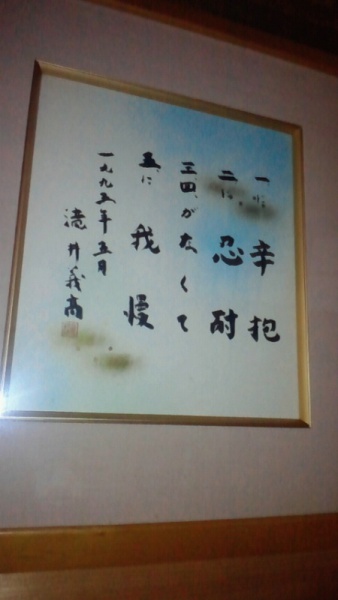 一に辛抱
二に忍耐
三四がなくて
五に我慢
一九九五年五月
滝井義高